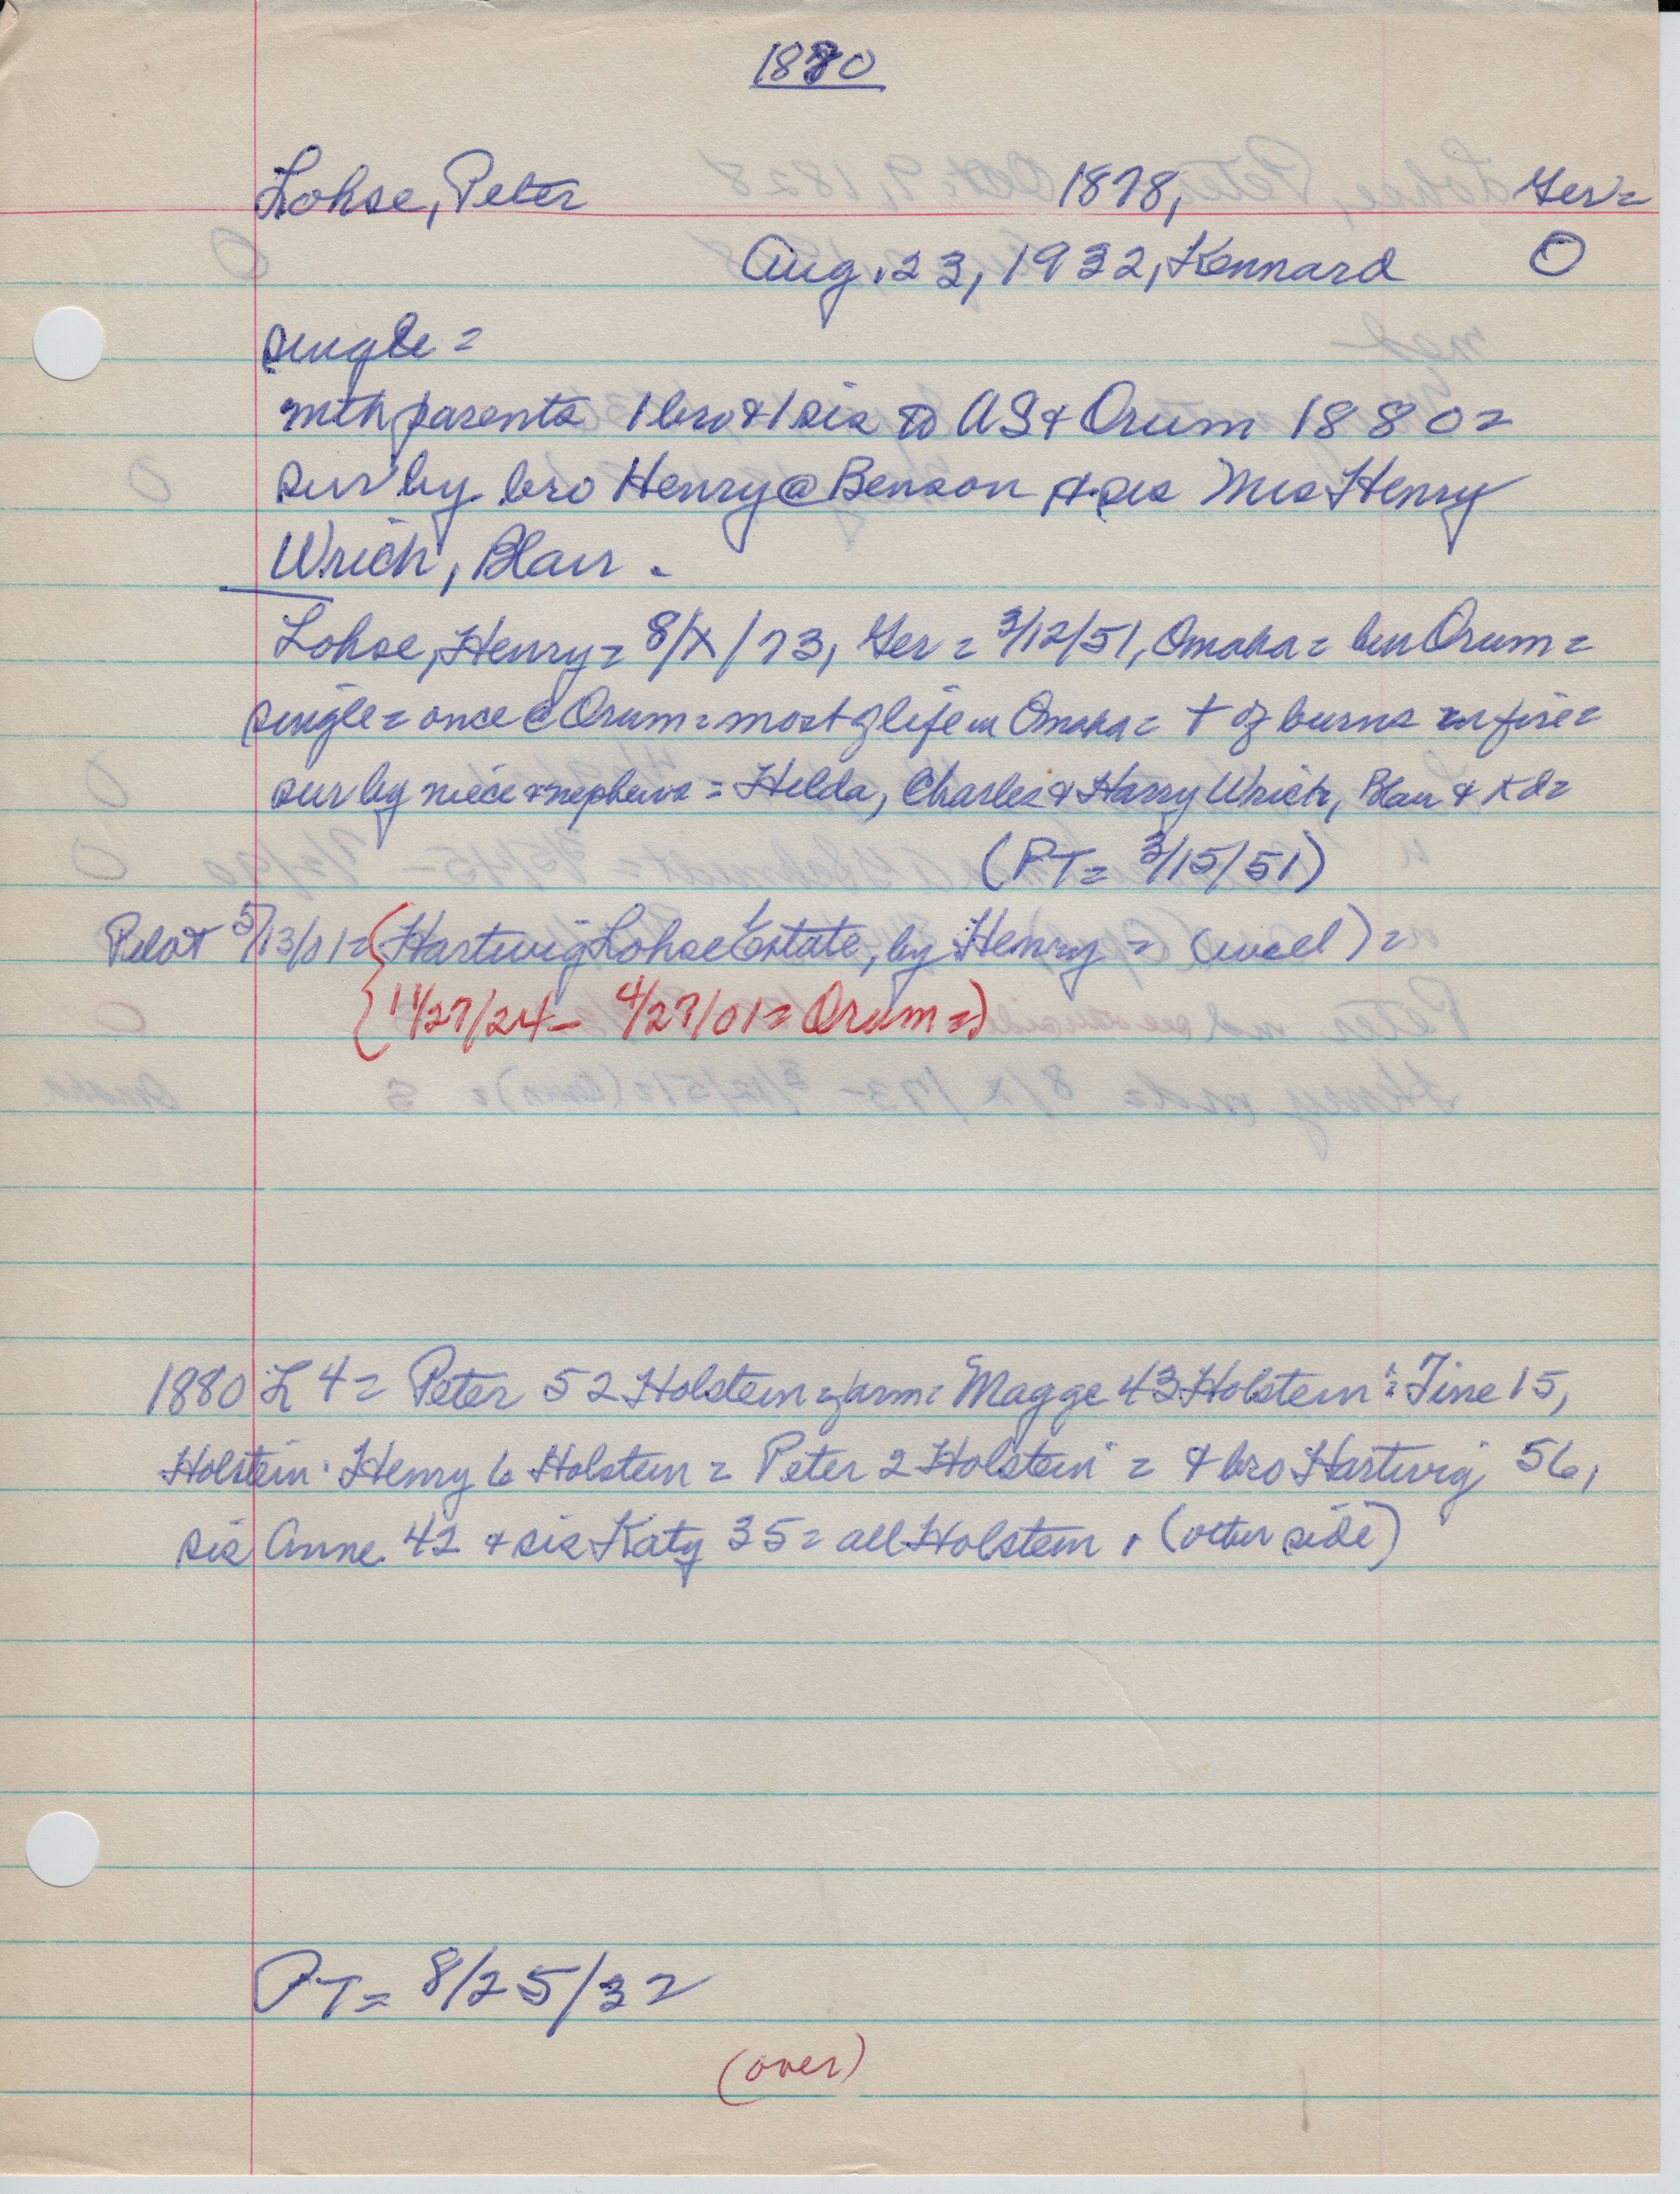 1880
Lohse, Peter 1878, Ger =
Aug. 23, 1932, Kennard O
single =
with parents 1 bro & 1 sis to US & Orum 1880 =
sur by bro Henry @ Benson & sis Mrs Henry
Wrich, Blair.
Lohse, Henry = 8/X/73, Ger = 3/12/51, Omaha = bur Orum =
single = once @ Orum = most of life in Omaha = † of burns in fire =
sur by niece & nephews = Hilda, Charles & Harry Wrich, Blair & Kd =
(PT = 3/15/51)
Pilot 5/13/01 = Hartwig Lohse Estate, by Henry = (uvcel) =
{11/27/24 - 4/27/01 = Orum =)
1880 L 4 = Peter 52 Holstein = farm = Magge 43 Holstein = Tine 15,
Holstein. Henry 6 Holstein = Peter 2 Holstein = & bro Hartwig 56,
sis Anne 42 & sis Katy 35 = all Holstein. (other side)
PT = 8/25/32
(over)